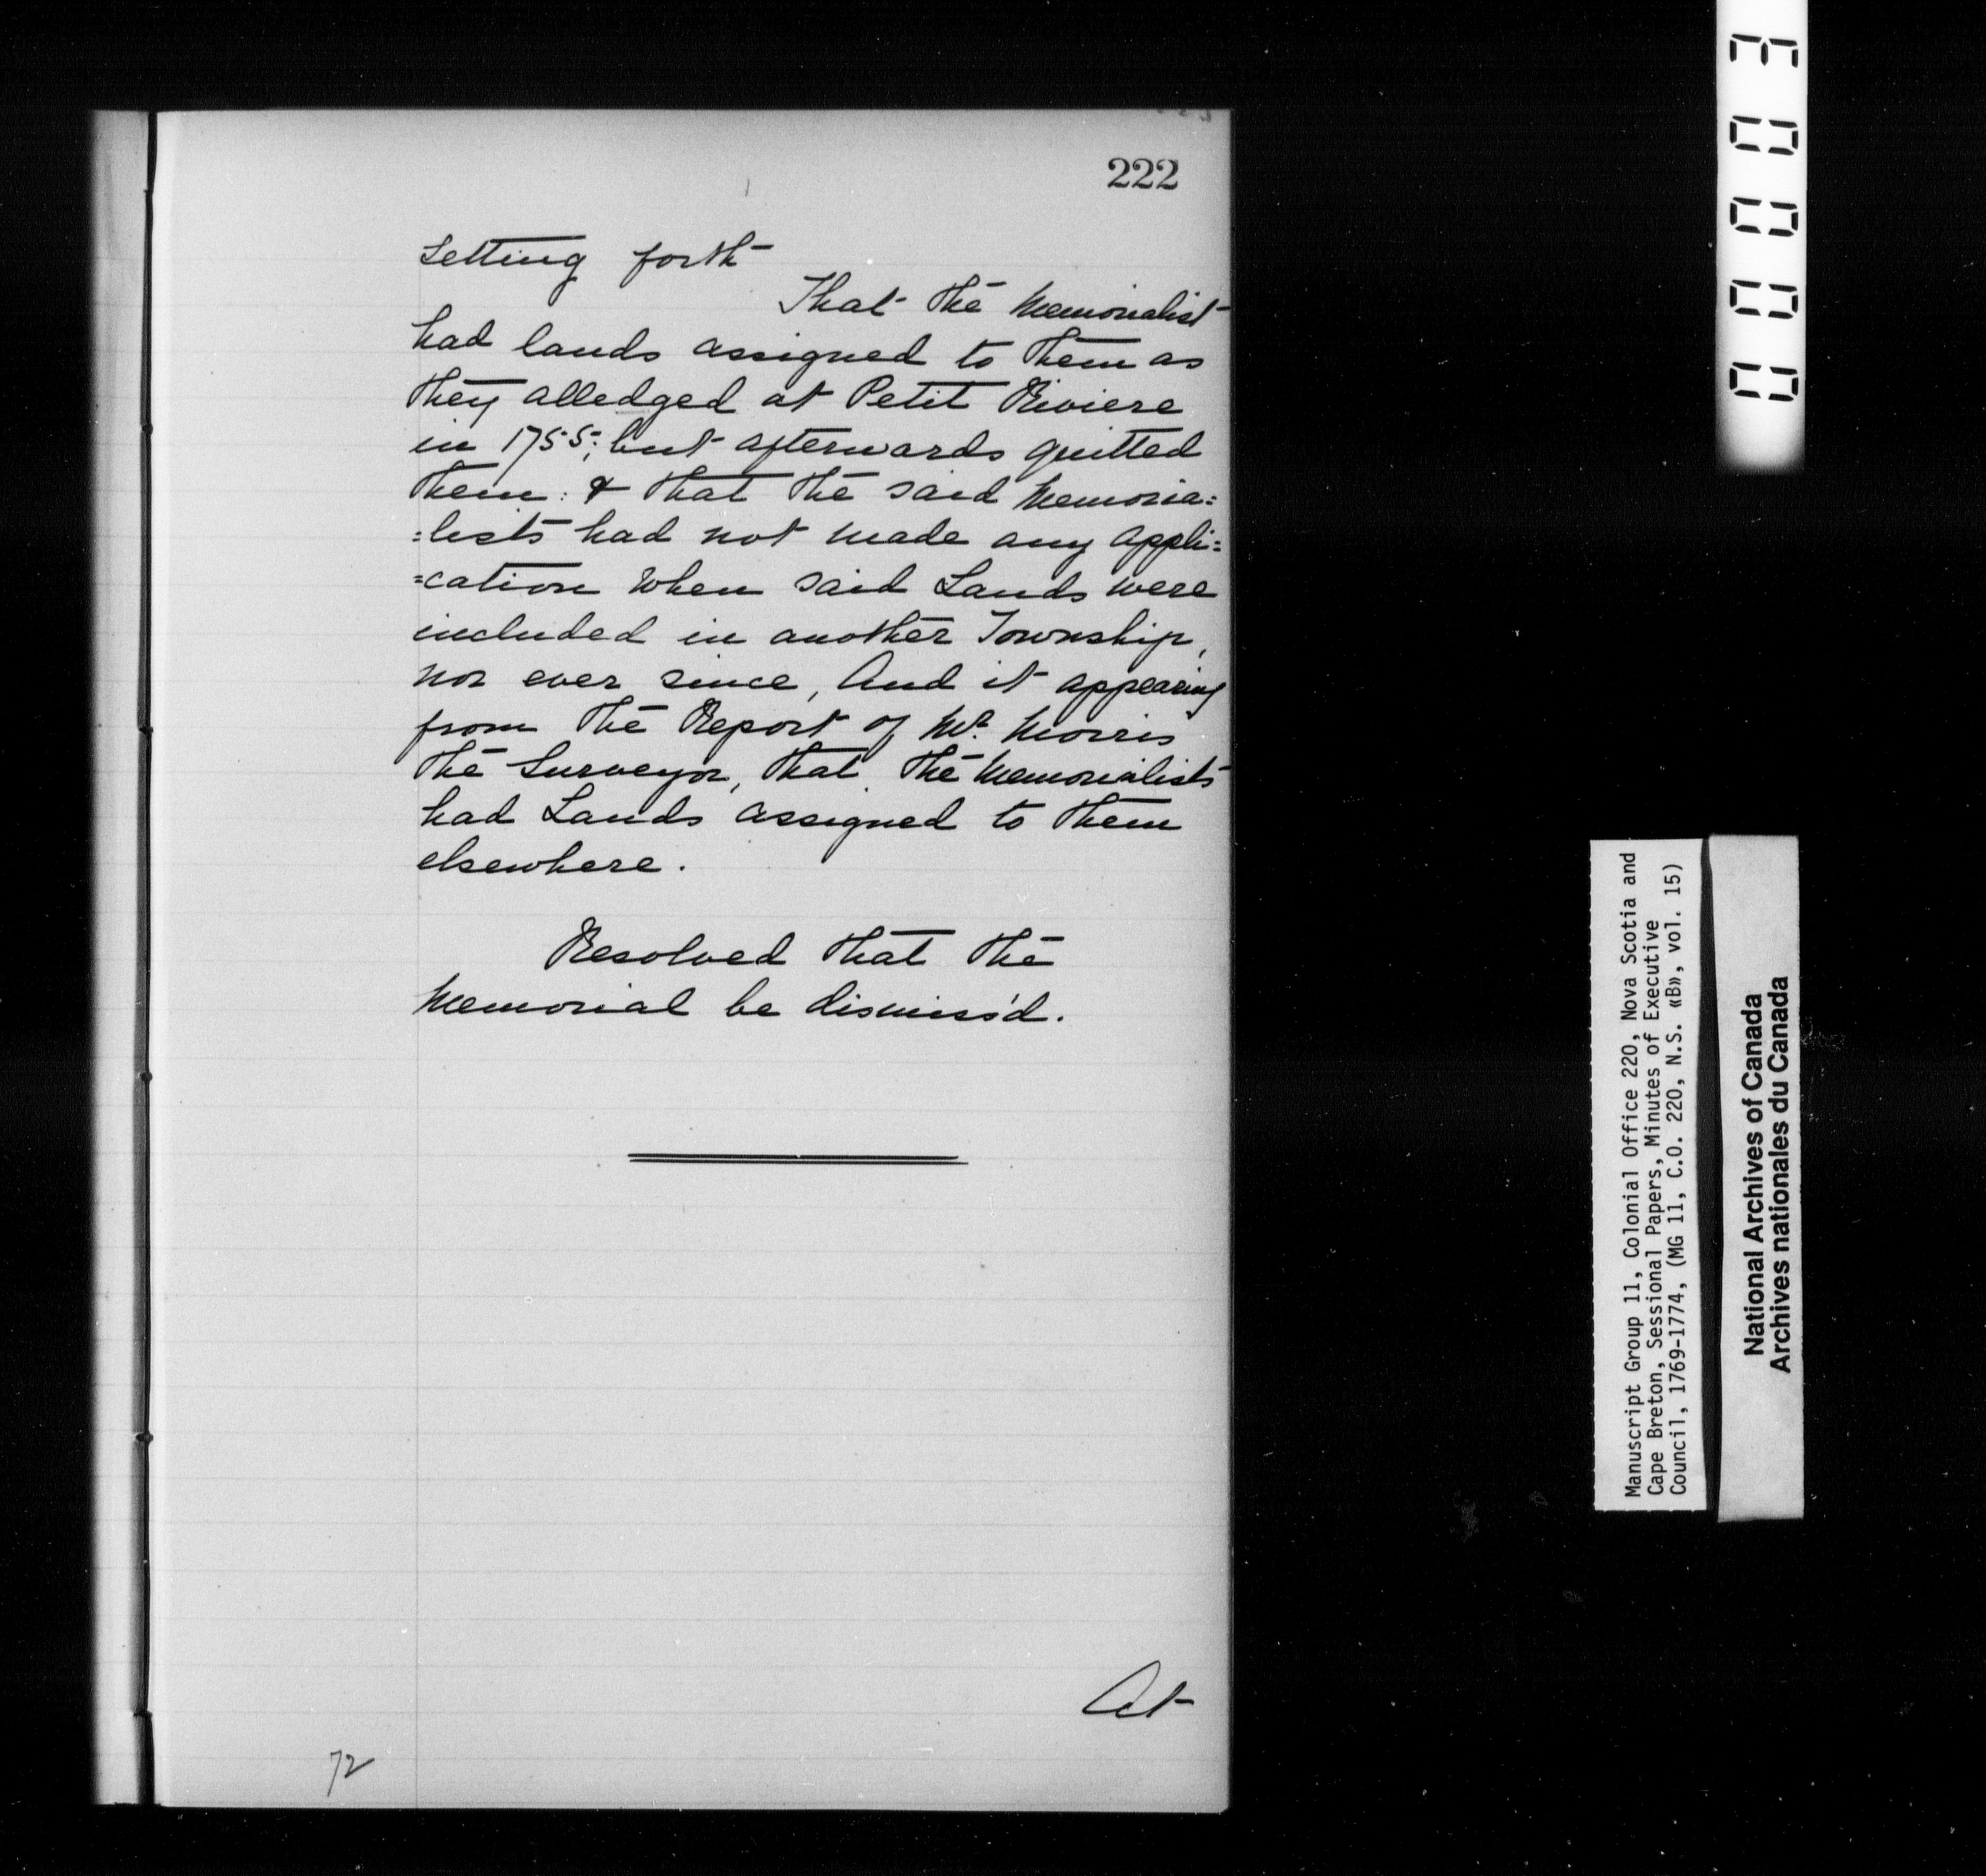 222
Setting forth
That the Memorialist
had lands assigned to them as
they alledged at Petit Riviere
in 1755; but afterwards quitted
them: & that the said Memoria=
=lists had not made any appli=
=cation when said Lands were
included in another Township,
nor ever since, And it appearing
from the Report of Mr. Morris
the Surveyor, that the Memorialists
had Lands assigned to them
elsewhere.
Resolved that the
Memorial be dismiss'd.
At
72
Manuscript Group 11, Colonial Office 220, Nova Scotia and
Cape Breton, Sessional Papers, Minutes of Executive
Council, 1769-1774, (MG 11, C.O. 220, N.S. «B», vol. 15)
National Archives of Canada
Archives nationales du Canada